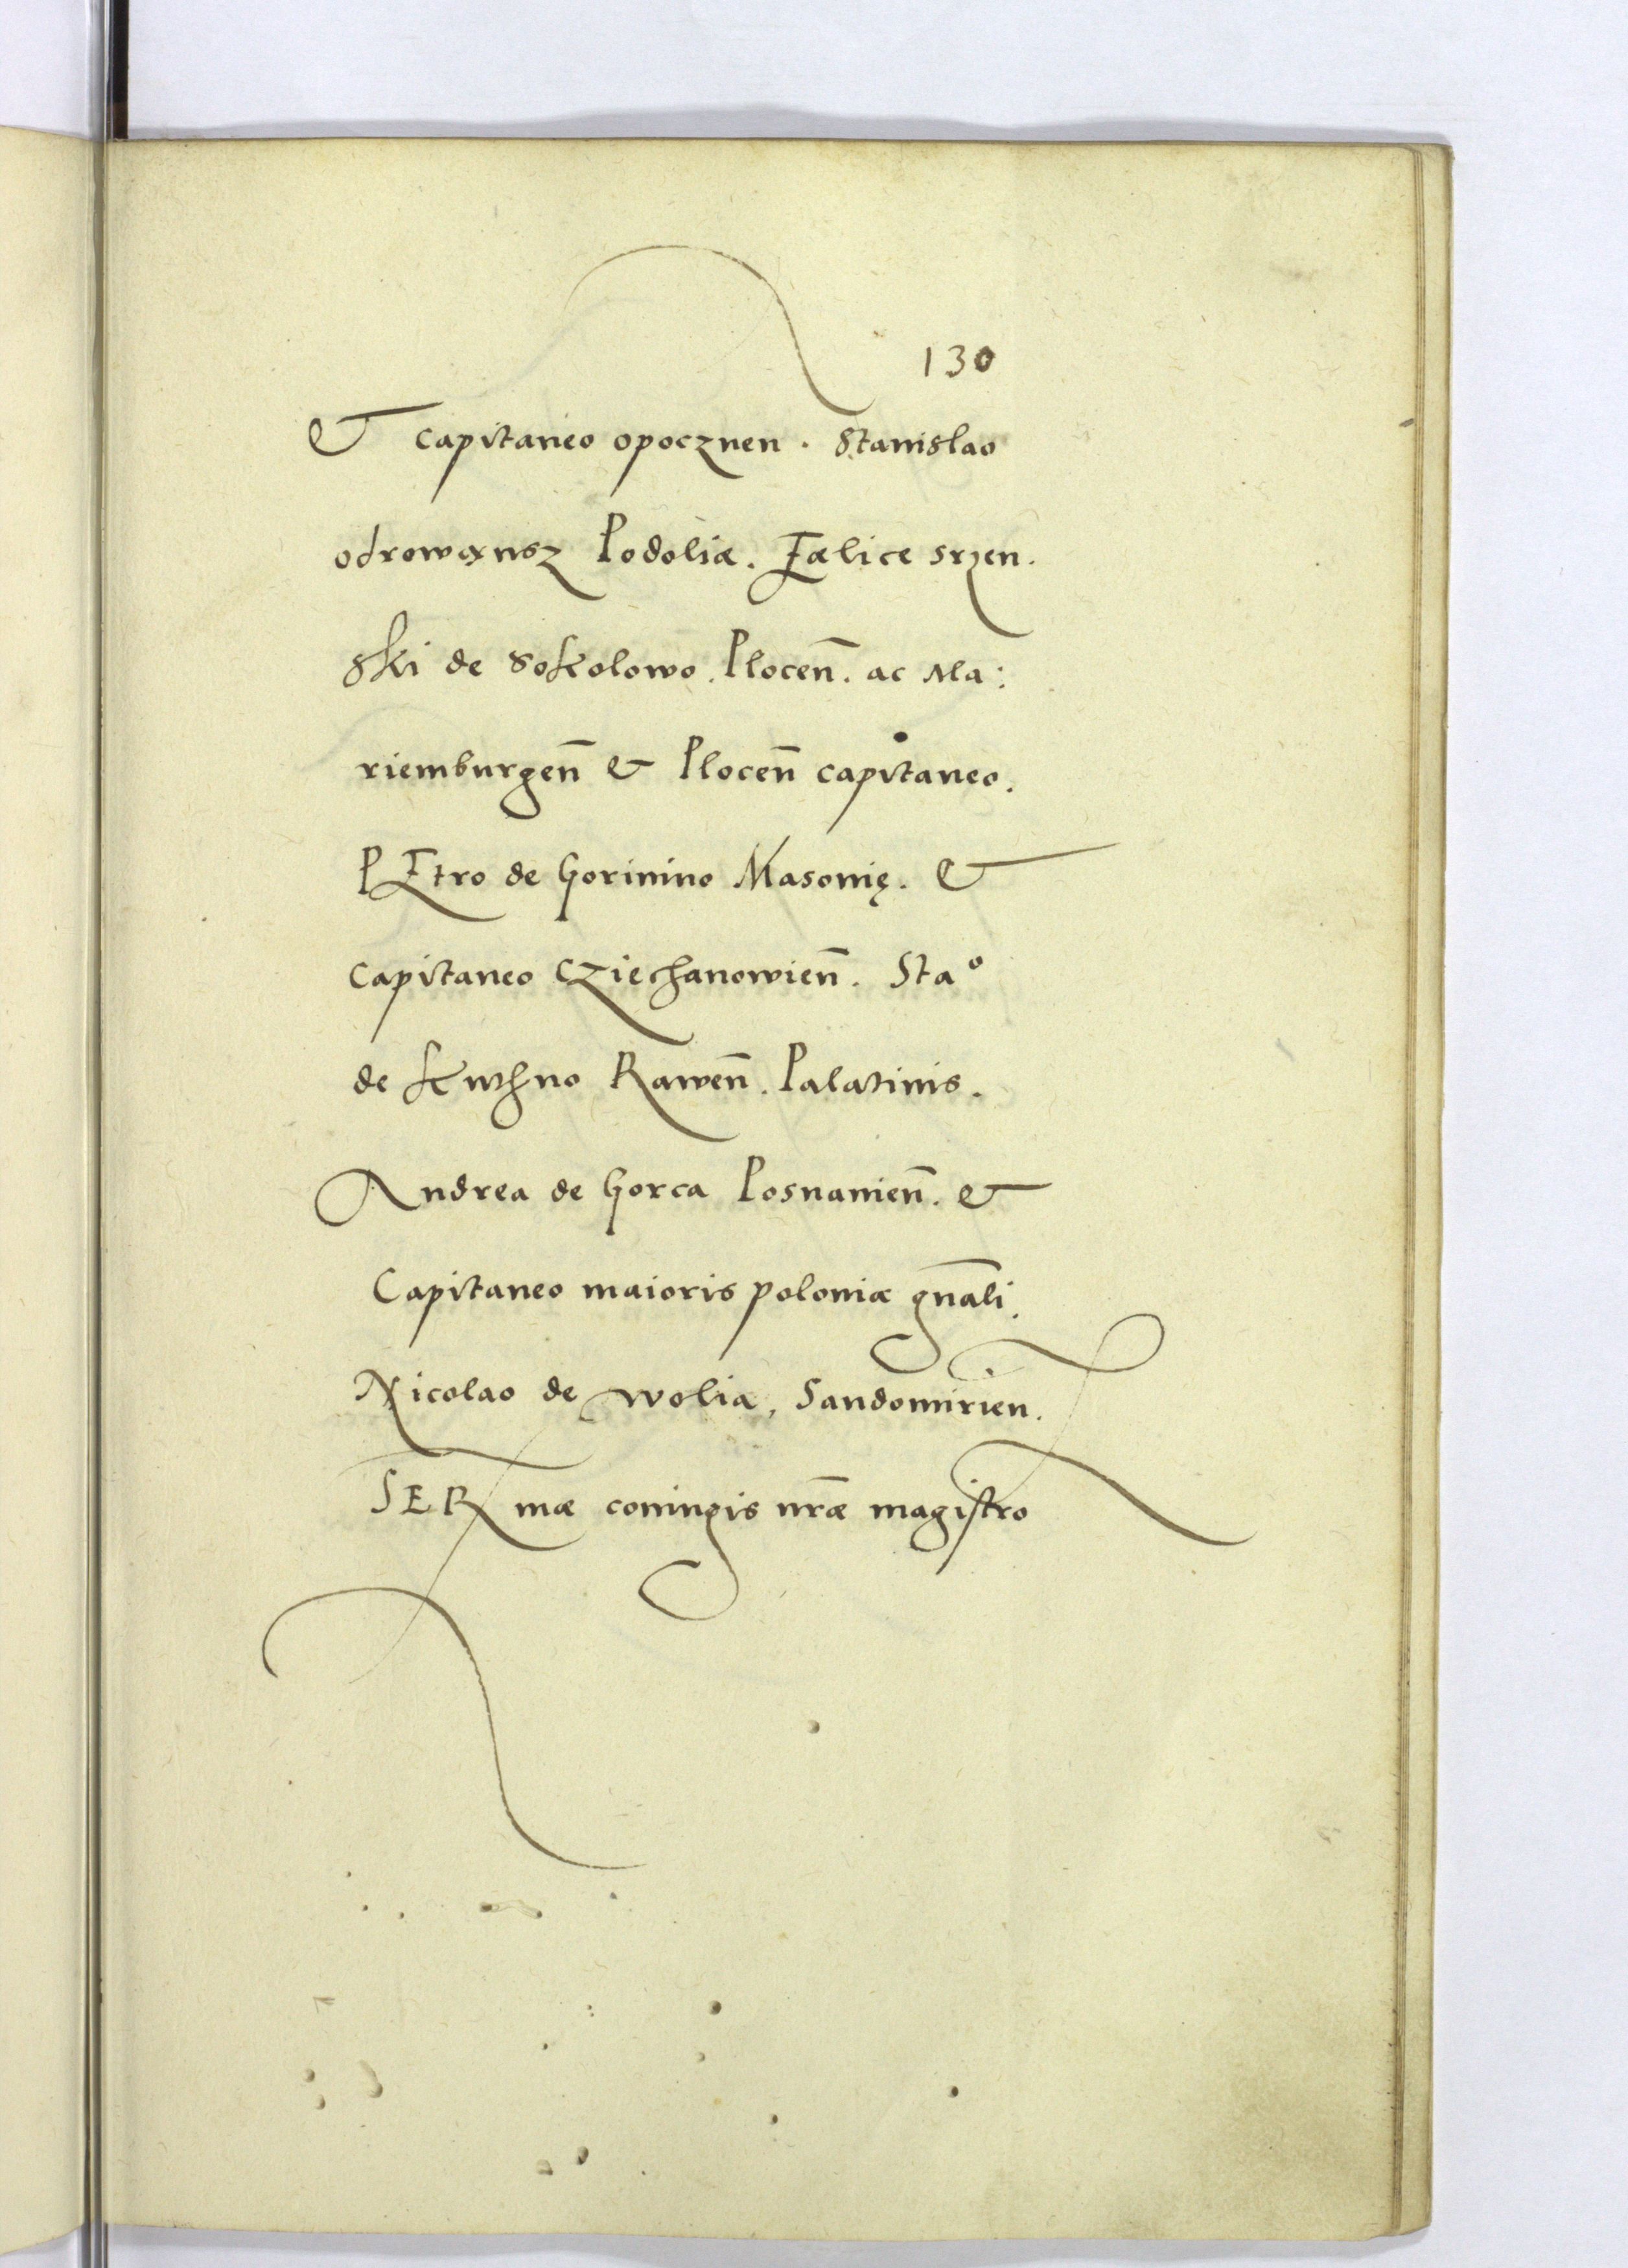 130
& capitaneo opocznen. Stanislao
odrowąnsz Podoliæ. Fælice srzen.
ski de Sokolowo. Plocen̄. ac Ma:
riemburgen̄ & Plocen̄ capitaneo.
PEtro de Gorinino Masonię. &
capitaneo Cziechanowien̄. Staº
de Kuthno Rawen̄. Palatinis.
Andrea de Gorca Posnanien̄. &
Capitaneo maioris poloniæ gn̄ali.
Nicolao de Wolia, Sandomirien.
SERmæ coniugis nr̄æ magistro